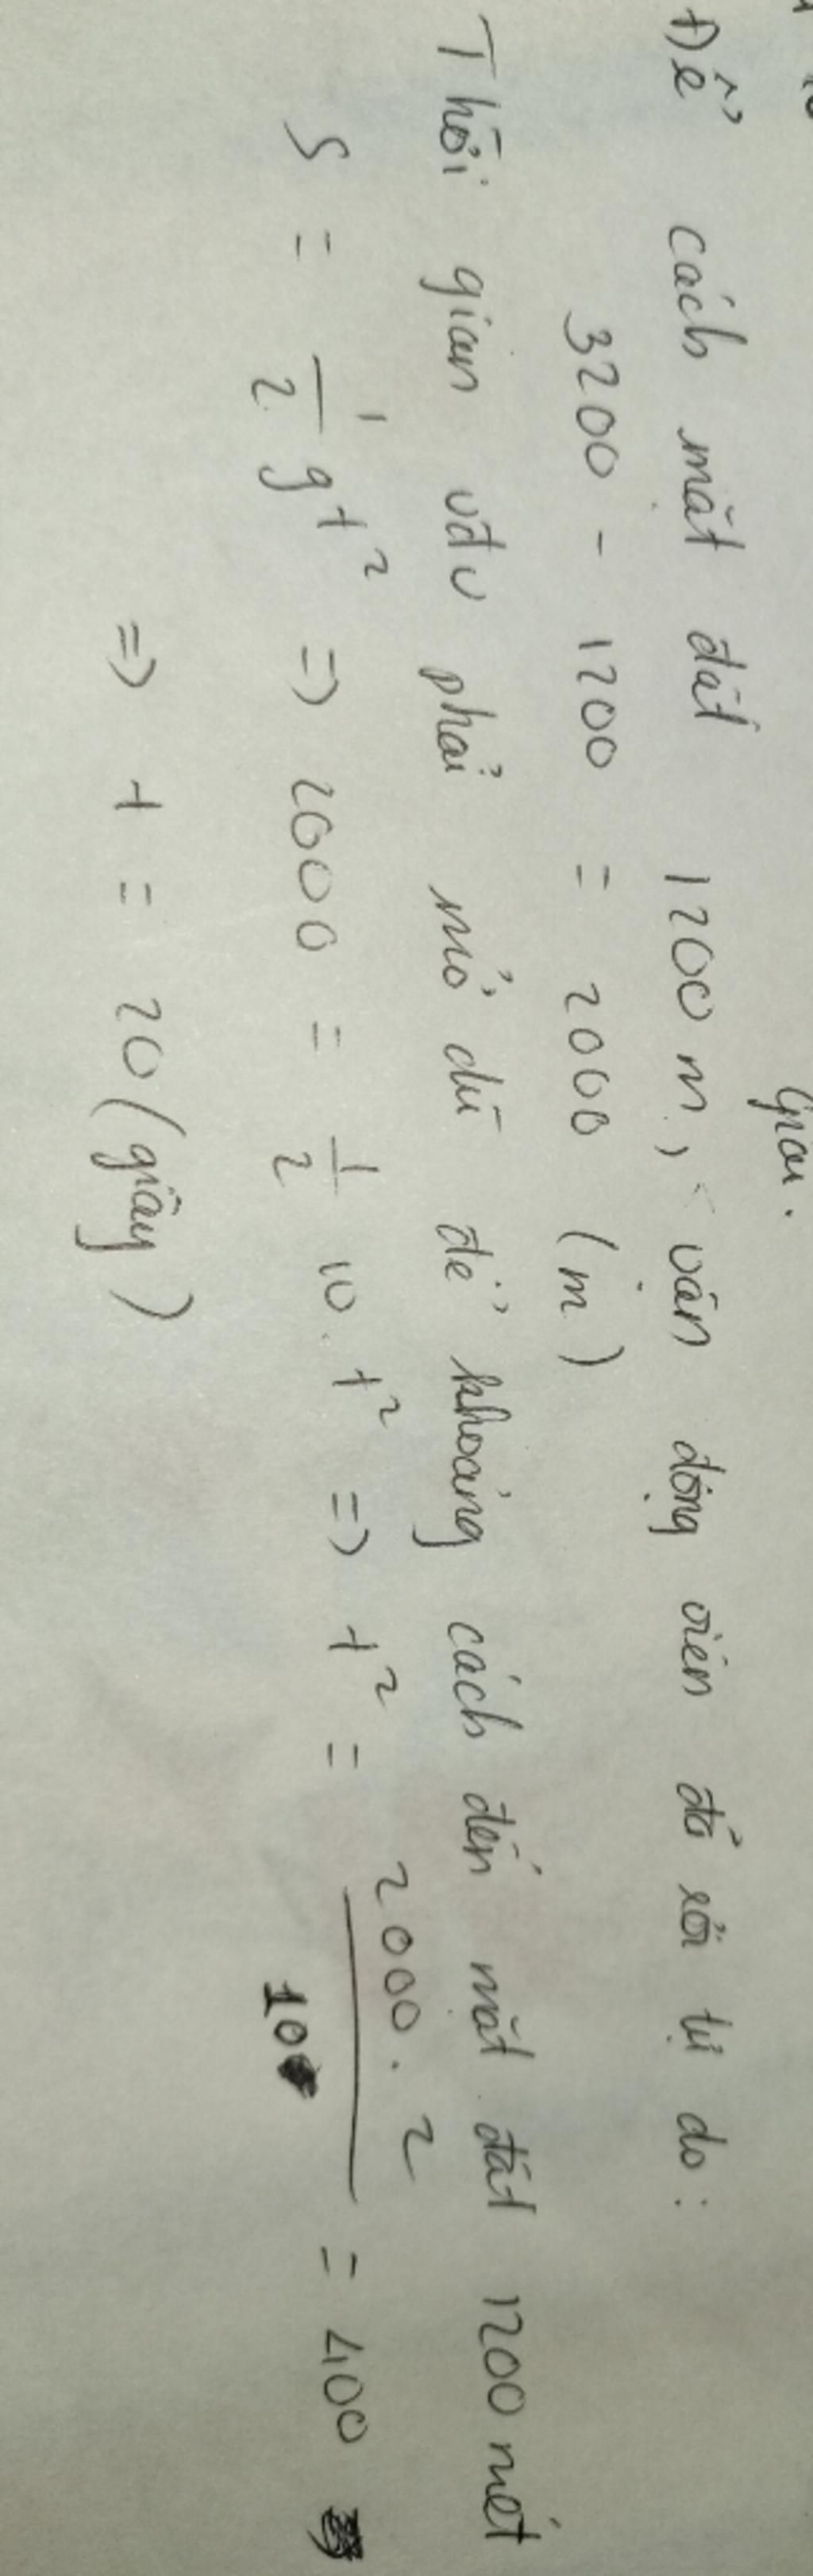 Giải.
Để cách mặt đất 1200 m, vận động viên đã rơi tự do:
3200 - 1200 = 2000 (m)
Thời gian vđv phải mở dù để khoảng cách đến mặt đất 1200 mét
S = 1/2 gt² => 2000 = 1/2 10. t² => t² = 2000. 2 / 10 = 400
=> t = 20 (giây)